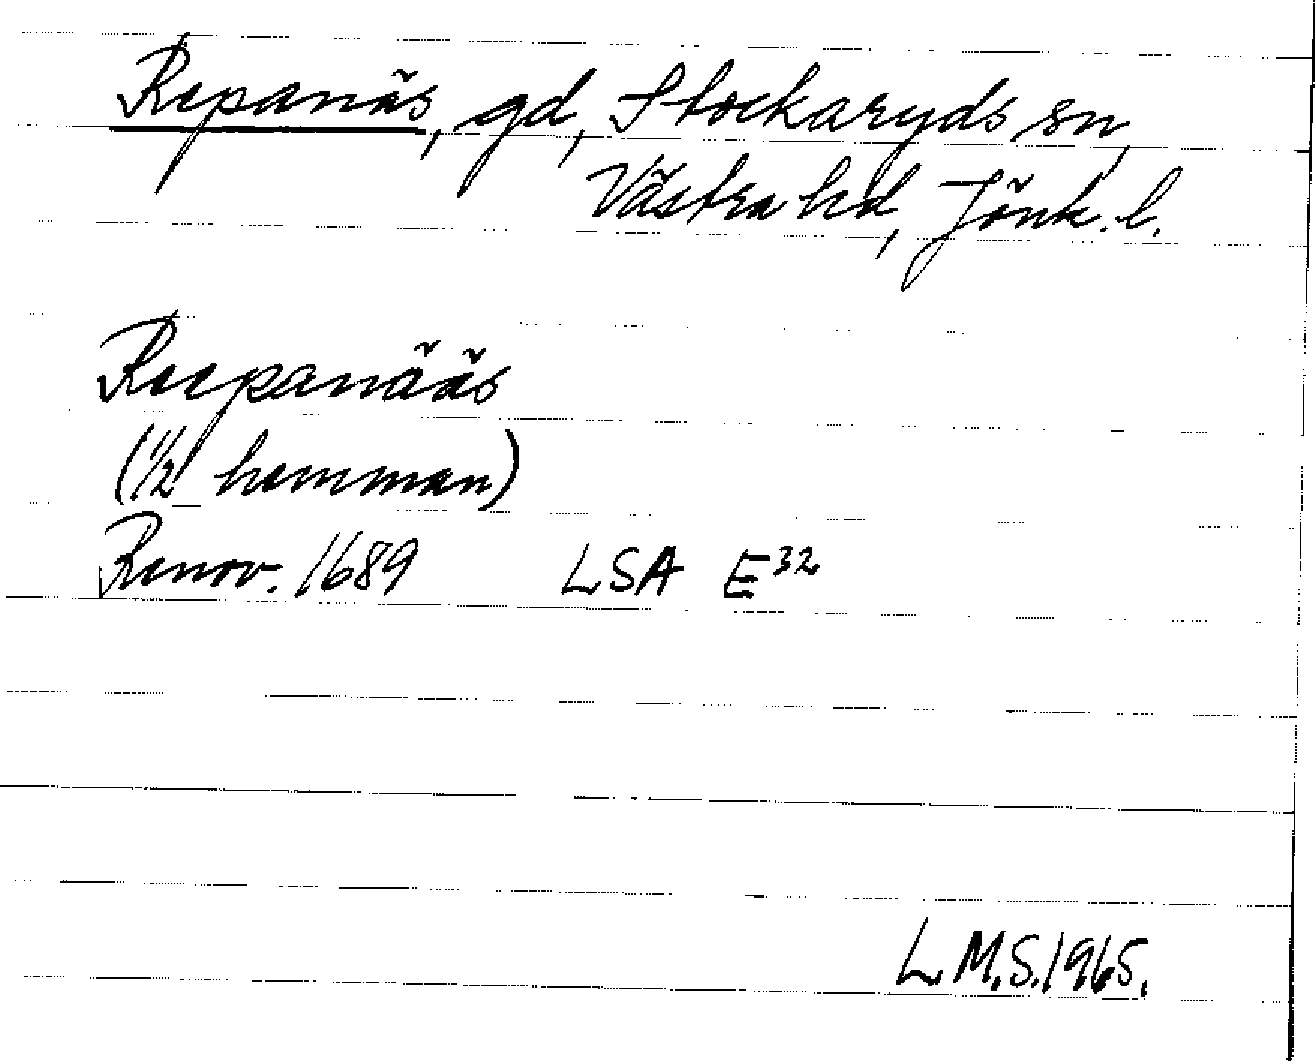 Repanäs, gd, Stockaryds sn,
Västra hd, Jönk. l.
Reepanääs
(1/2 hemman)
Renov. 1689 LSA E³²
L M.S. 1965.